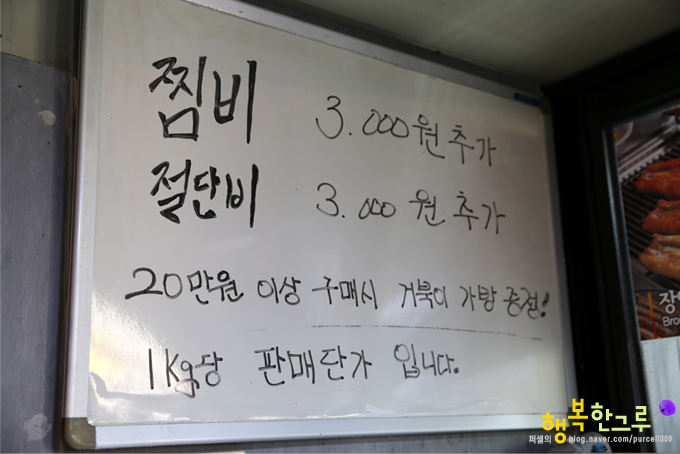 찜비 3.000원 추가
절단비 3.000원 추가
20만원 이상 구매시 거북이 가방 증정!
1Kg당 판매단가 입니다.
장
Bro
퍼셀의 행복한그루
blog.naver.com/purcell309